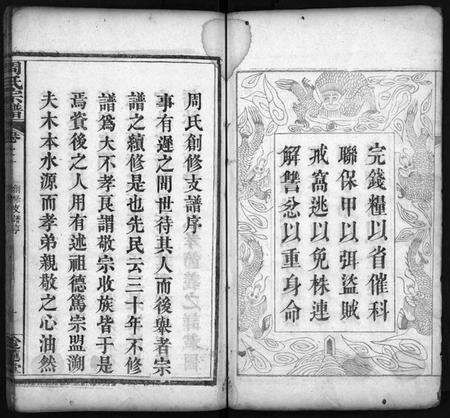 完錢糧以省催科
聯保甲以弭盜賊
戒窩逃以免株連
解讐忿以重身命
周氏創修支譜序
事有遲之間世待其人而後舉者宗
譜之續修是也先民云三十年不修
譜爲大不孝良謂敬宗收族皆于是
焉賞後之人用有述祖德篤宗盟溯
夫木本水源而孝弟親敬之心油然
周氏宗譜
卷